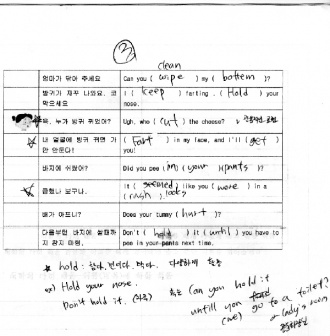 ③
clean
엄마가 닦아 주세요 Can you ( wipe ) my ( bottom )?
방귀가 자꾸 나와요. 코 막으세요 I ( keep ) farting. ( Hold ) your nose.
욱, 누가 방귀 뀌었어? Ugh, who ( cut ) the cheese?
내 얼굴에 방귀 뀌면 가만 안둔다! ( Fart ) in my face, and I'll ( get ) you!
바지에 쉬했어? Did you pee (in) (your) (pants)?
급했나 보구나. It ( seemed ) like you ( were ) in a ( rush ) looks
배가 아프니? Does your tummy ( hurt )?
다음부턴 바지에 쌀때까지 참지 마렴. Don't ( hold ) it ( until ) you have to pee in your pants next time.
* hold : 참다, 견디다, 막다.
ex) Hold your nose.
Don't hold it.
또는 Can you hold it
untill you
(we) go to a toilet?
→ lady's room